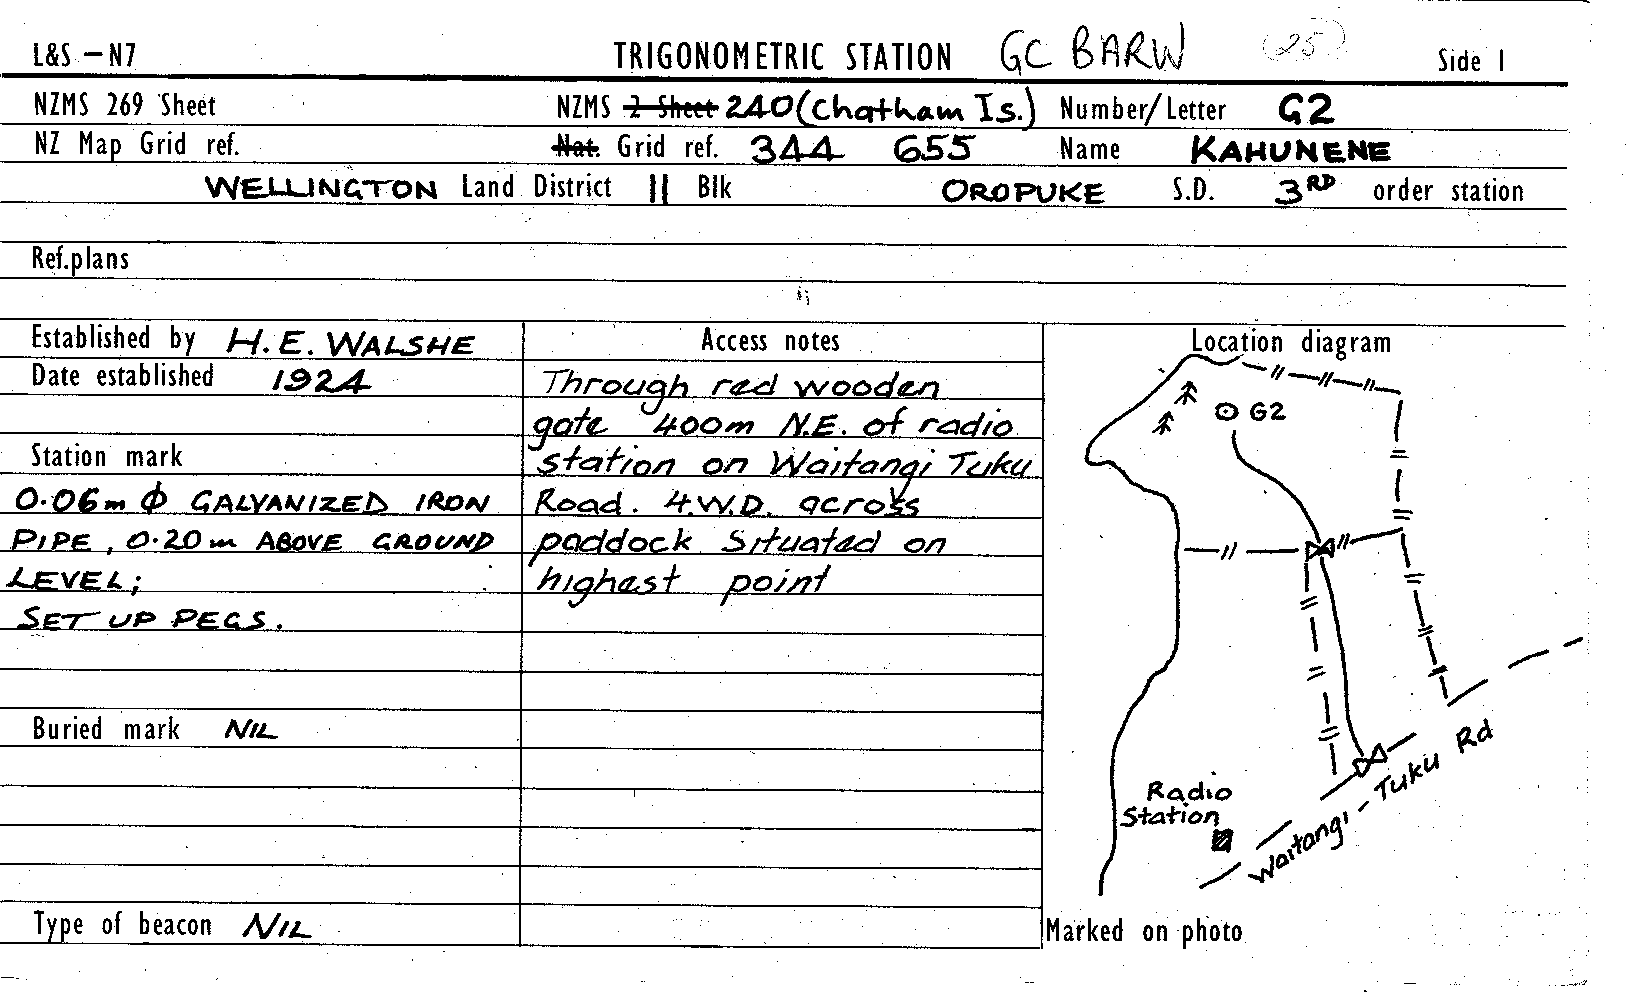 L&S – N7 TRIGONOMETRIC STATION GC BARW (25) Side 1
NZMS 269 Sheet NZMS 2 Sheet 240 (Chatham Is.) Number/Letter G2
NZ Map Grid ref. Nat. Grid ref. 344 655 Name KAHUNENE
WELLINGTON Land District II Blk OROPUKE S.D. 3RD order station
Ref.plans
Established by H. E. WALSHE
Date established 1924
Station mark
0.06m Φ GALVANIZED IRON
PIPE, 0.20m ABOVE GROUND
LEVEL;
SET UP PEGS.
Buried mark NIL
Type of beacon NIL
Access notes
Through red wooden
gate 400m N.E. of radio
station on Waitangi Tuku
Road. 4.W.D. across
paddock. Situated on
highest point
Location diagram
G2
Radio
Station
Waitangi - Tuku Rd
Marked on photo